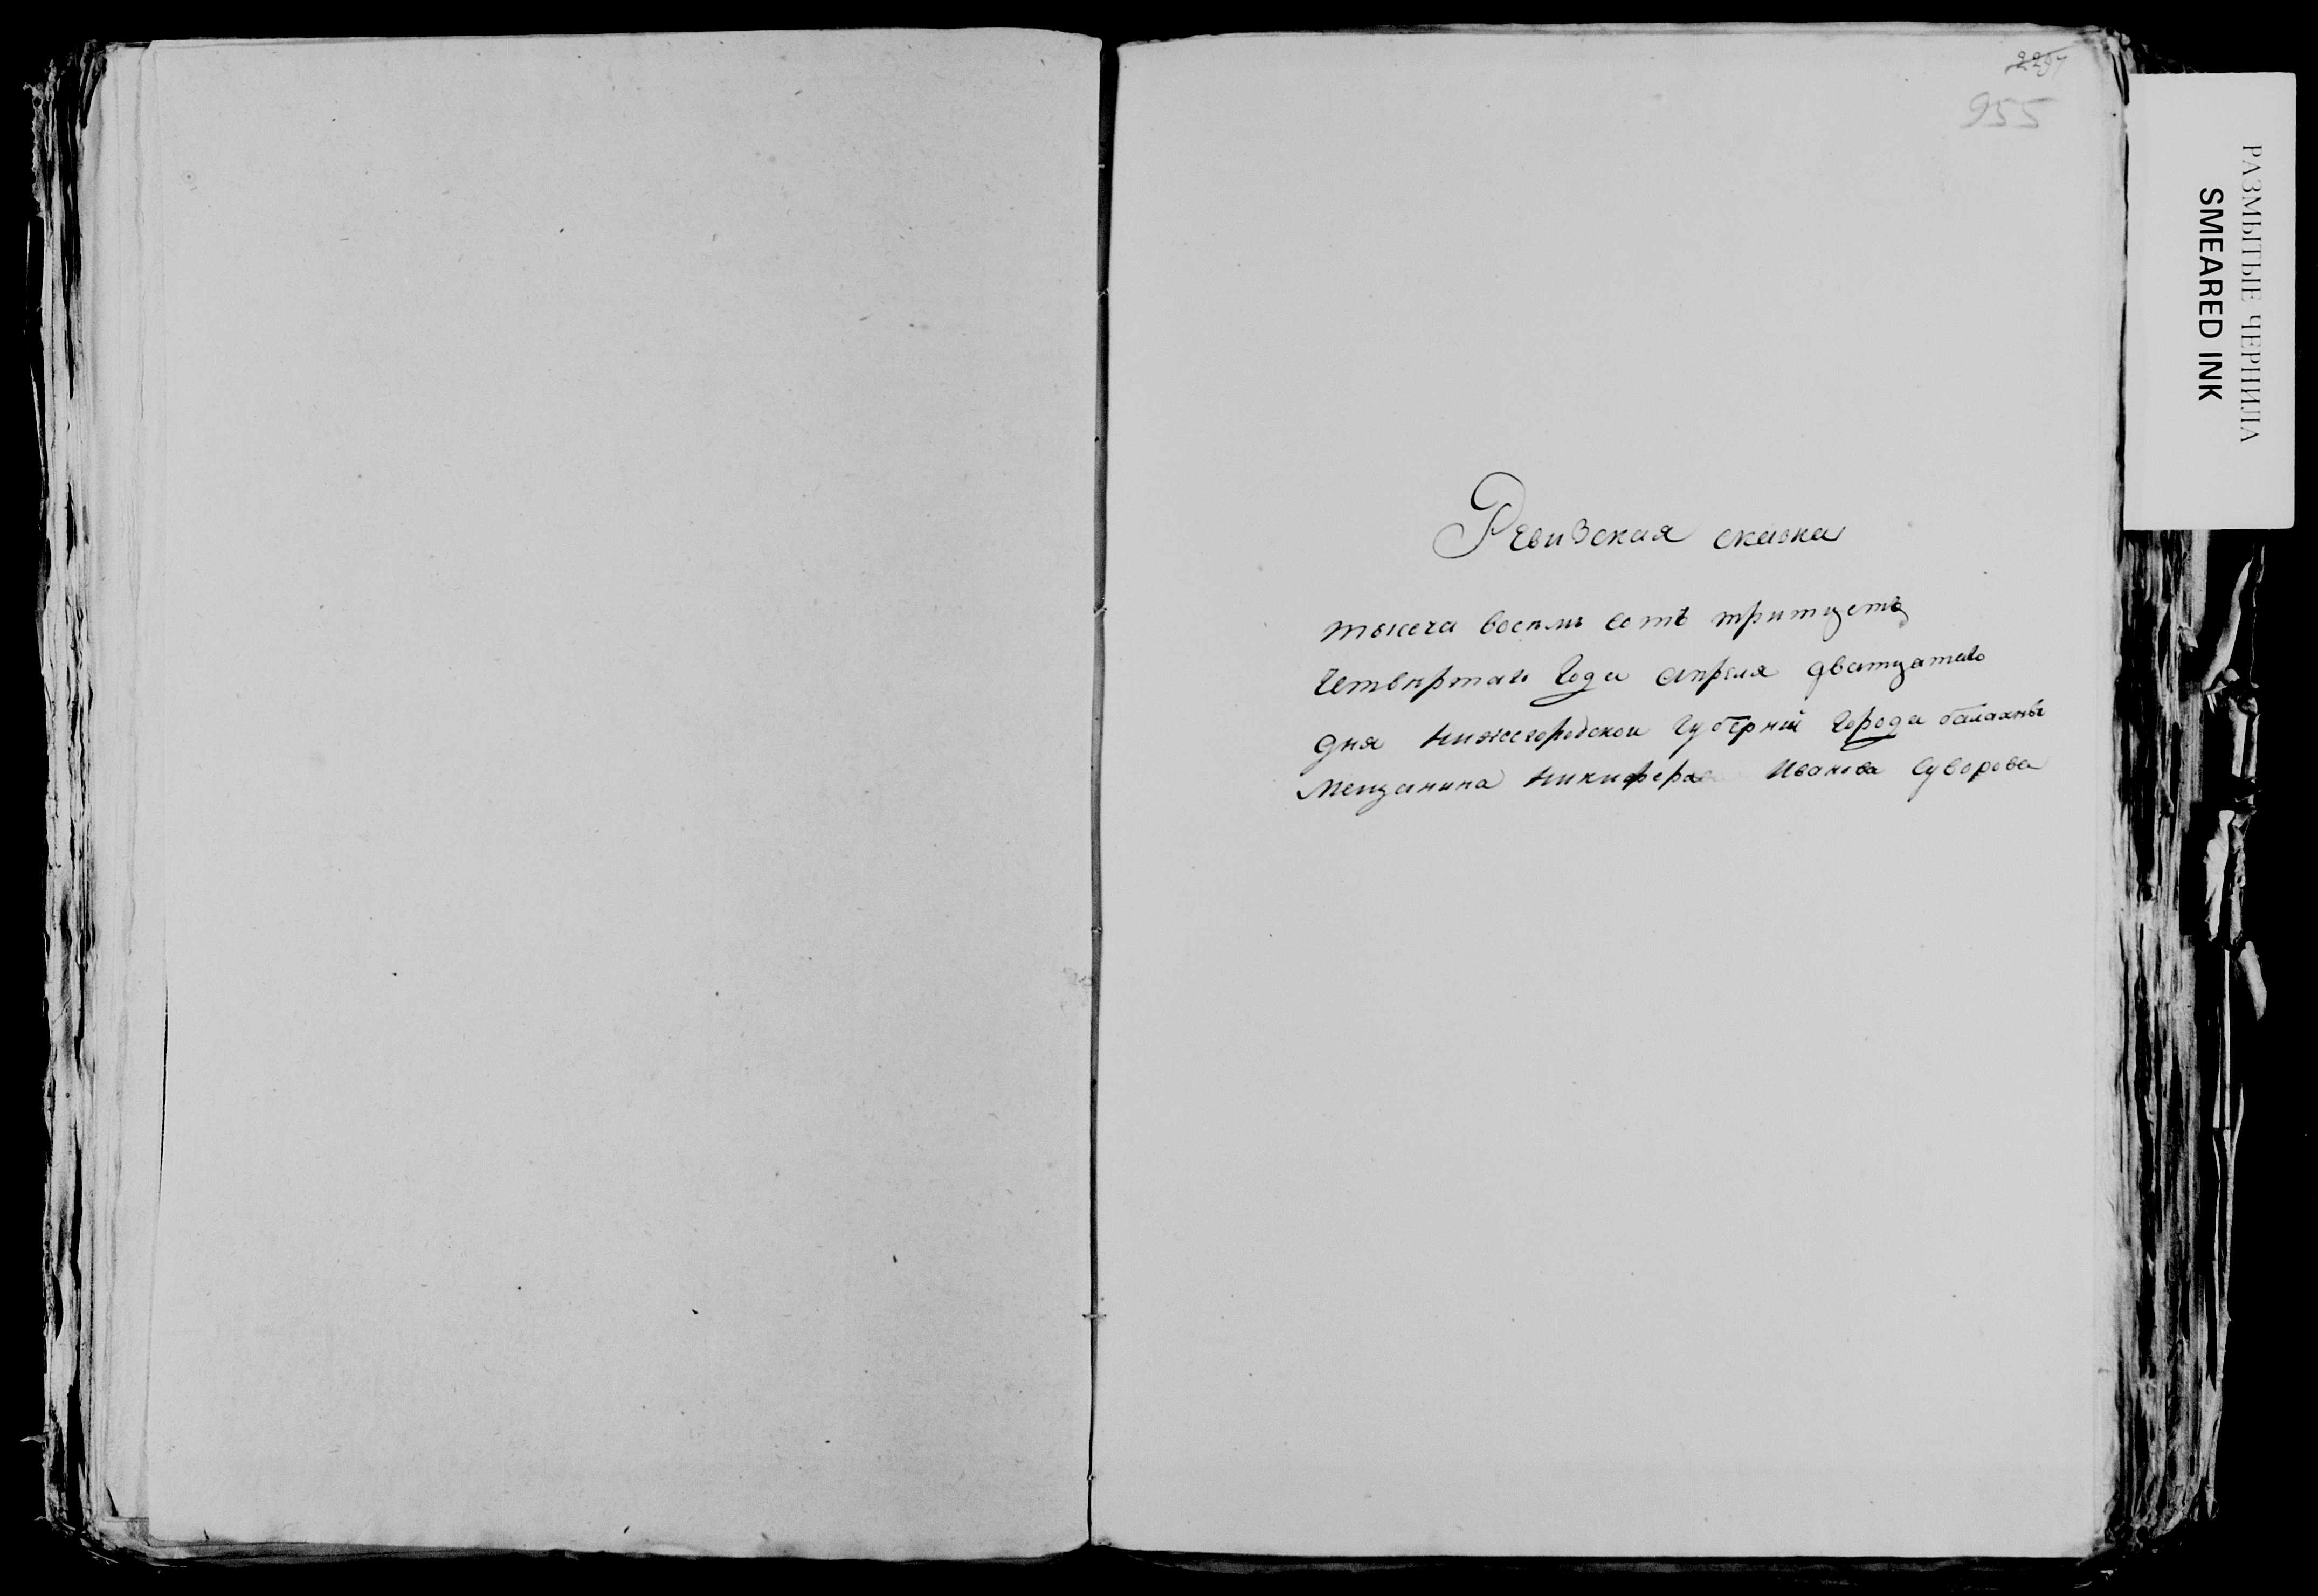 955
Ревизская сказка
тысеча восемь сотъ тритцеть
Четвертаго Года апреля дватцатаго
дня нижегородской Губернии Города балахны
мещанина никифера Иванова Суворова
РАЗМЫТЫЕ ЧЕРНИЛА
SMEARED INK